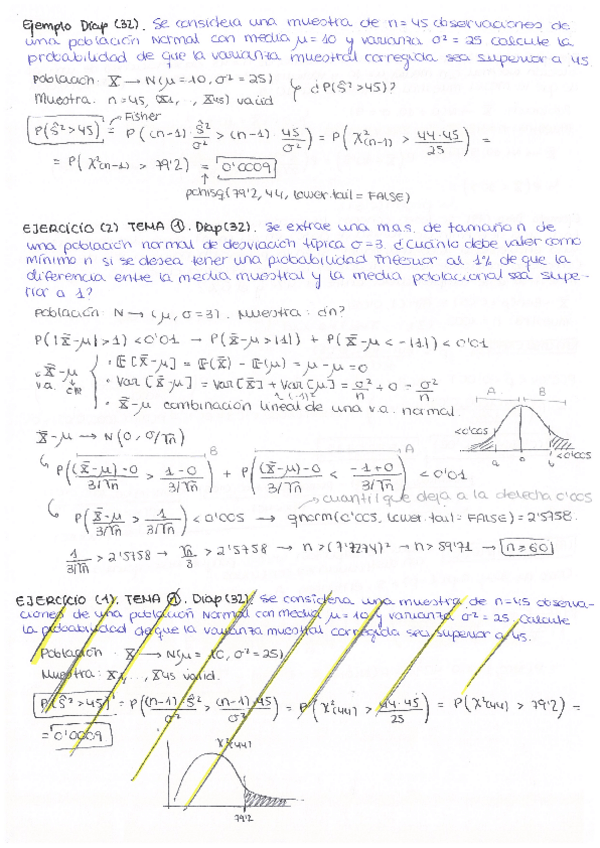 Ejemplo Diap (32). Se considera una muestra de n=45 observaciones de
una población Normal con media μ=10 y varianza σ²=25 calcule la
probabilidad de que la varianza muestral corregida sea superior a 45
Población: X → N(μ=10, σ²=25)
Muestra: n=45, (X1, ., X45) va iid
¿P(Ŝ²>45)?
Fisher
P(Ŝ²>45) = P((n-1)·Ŝ²/σ² > (n-1)·45/σ²) = P(χ²(n-1) > 44·45/25) =
= P(χ²(n-1) > 79'2) = 0'0009
pchisq(79'2, 44, lower.tail = FALSE)
EJERCICIO (2) TEMA ①. Diap(32). Se extrae una m.a.s. de tamaño n de
una población normal de desviación típica σ=3. ¿Cuánto debe valer como
mínimo n si se desea tener una probabilidad inferior al 1% de que la
diferencia entre la media muestral y la media poblacional sea supe-
rior a 1?
Población: N → (μ, σ=3). Muestra: ¿n?
P(|X̄-μ|>1) < 0'01 → P(X̄-μ>|1|) + P(X̄-μ < -|1|) < 0'01
X̄-μ v.a. cte
• E[X̄-μ] = E(X̄) - E(μ) = μ-μ = 0
• Var[X̄-μ] = Var[X̄] + Var[μ] = σ²/n + 0 = σ²/n
1 (-1)²
• X̄-μ combinación lineal de una v.a. normal.
A B
<0'005 a 0 b <0'005
X̄-μ → N(0, σ/√n)
B A
P((X̄-μ)-0/3/√n > 1-0/3/√n) + P((X̄-μ)-0/3/√n < -1+0/3/√n) < 0'01
cuantil que deja a la derecha 0'005
P(X̄-μ/3/√n > 1/3/√n) < 0'005 → qnorm(0'005, lower.tail = FALSE) = 2'5758.
1/3/√n > 2'5758 → √n/3 > 2'5758 → n > (7'7274)² → n > 59'71 → n≥60
EJERCICIO (1). TEMA ①. Diap(32). Se considera una muestra de n=45 observa-
ciones de una población Normal con media μ=10 y varianza σ²=25. Calcule
la probabilidad de que la varianza muestral corregida sea superior a 45.
Población X → N(μ=10, σ²=25)
Muestra: X1, .., X45 va iid.
P(Ŝ²>45) = P((n-1)·Ŝ²/σ² > (n-1)·45/σ²) = P(χ²(44) > 44·45/25) = P(χ²(44) > 79'2) =
= 0'0009
χ²(44)
79'2